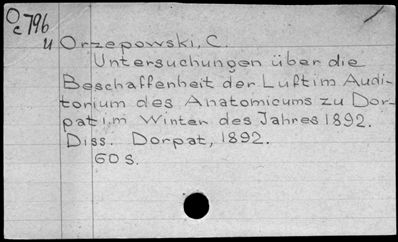 Oc796
u Orzepowski, C.
Untersuchungen über die
Beschaffenheit der Luft im Audi-
torium des Anatomicums zu Dor-
pat im Winter des Jahres 1892.
Diss. Dorpat, 1892.
60 S.